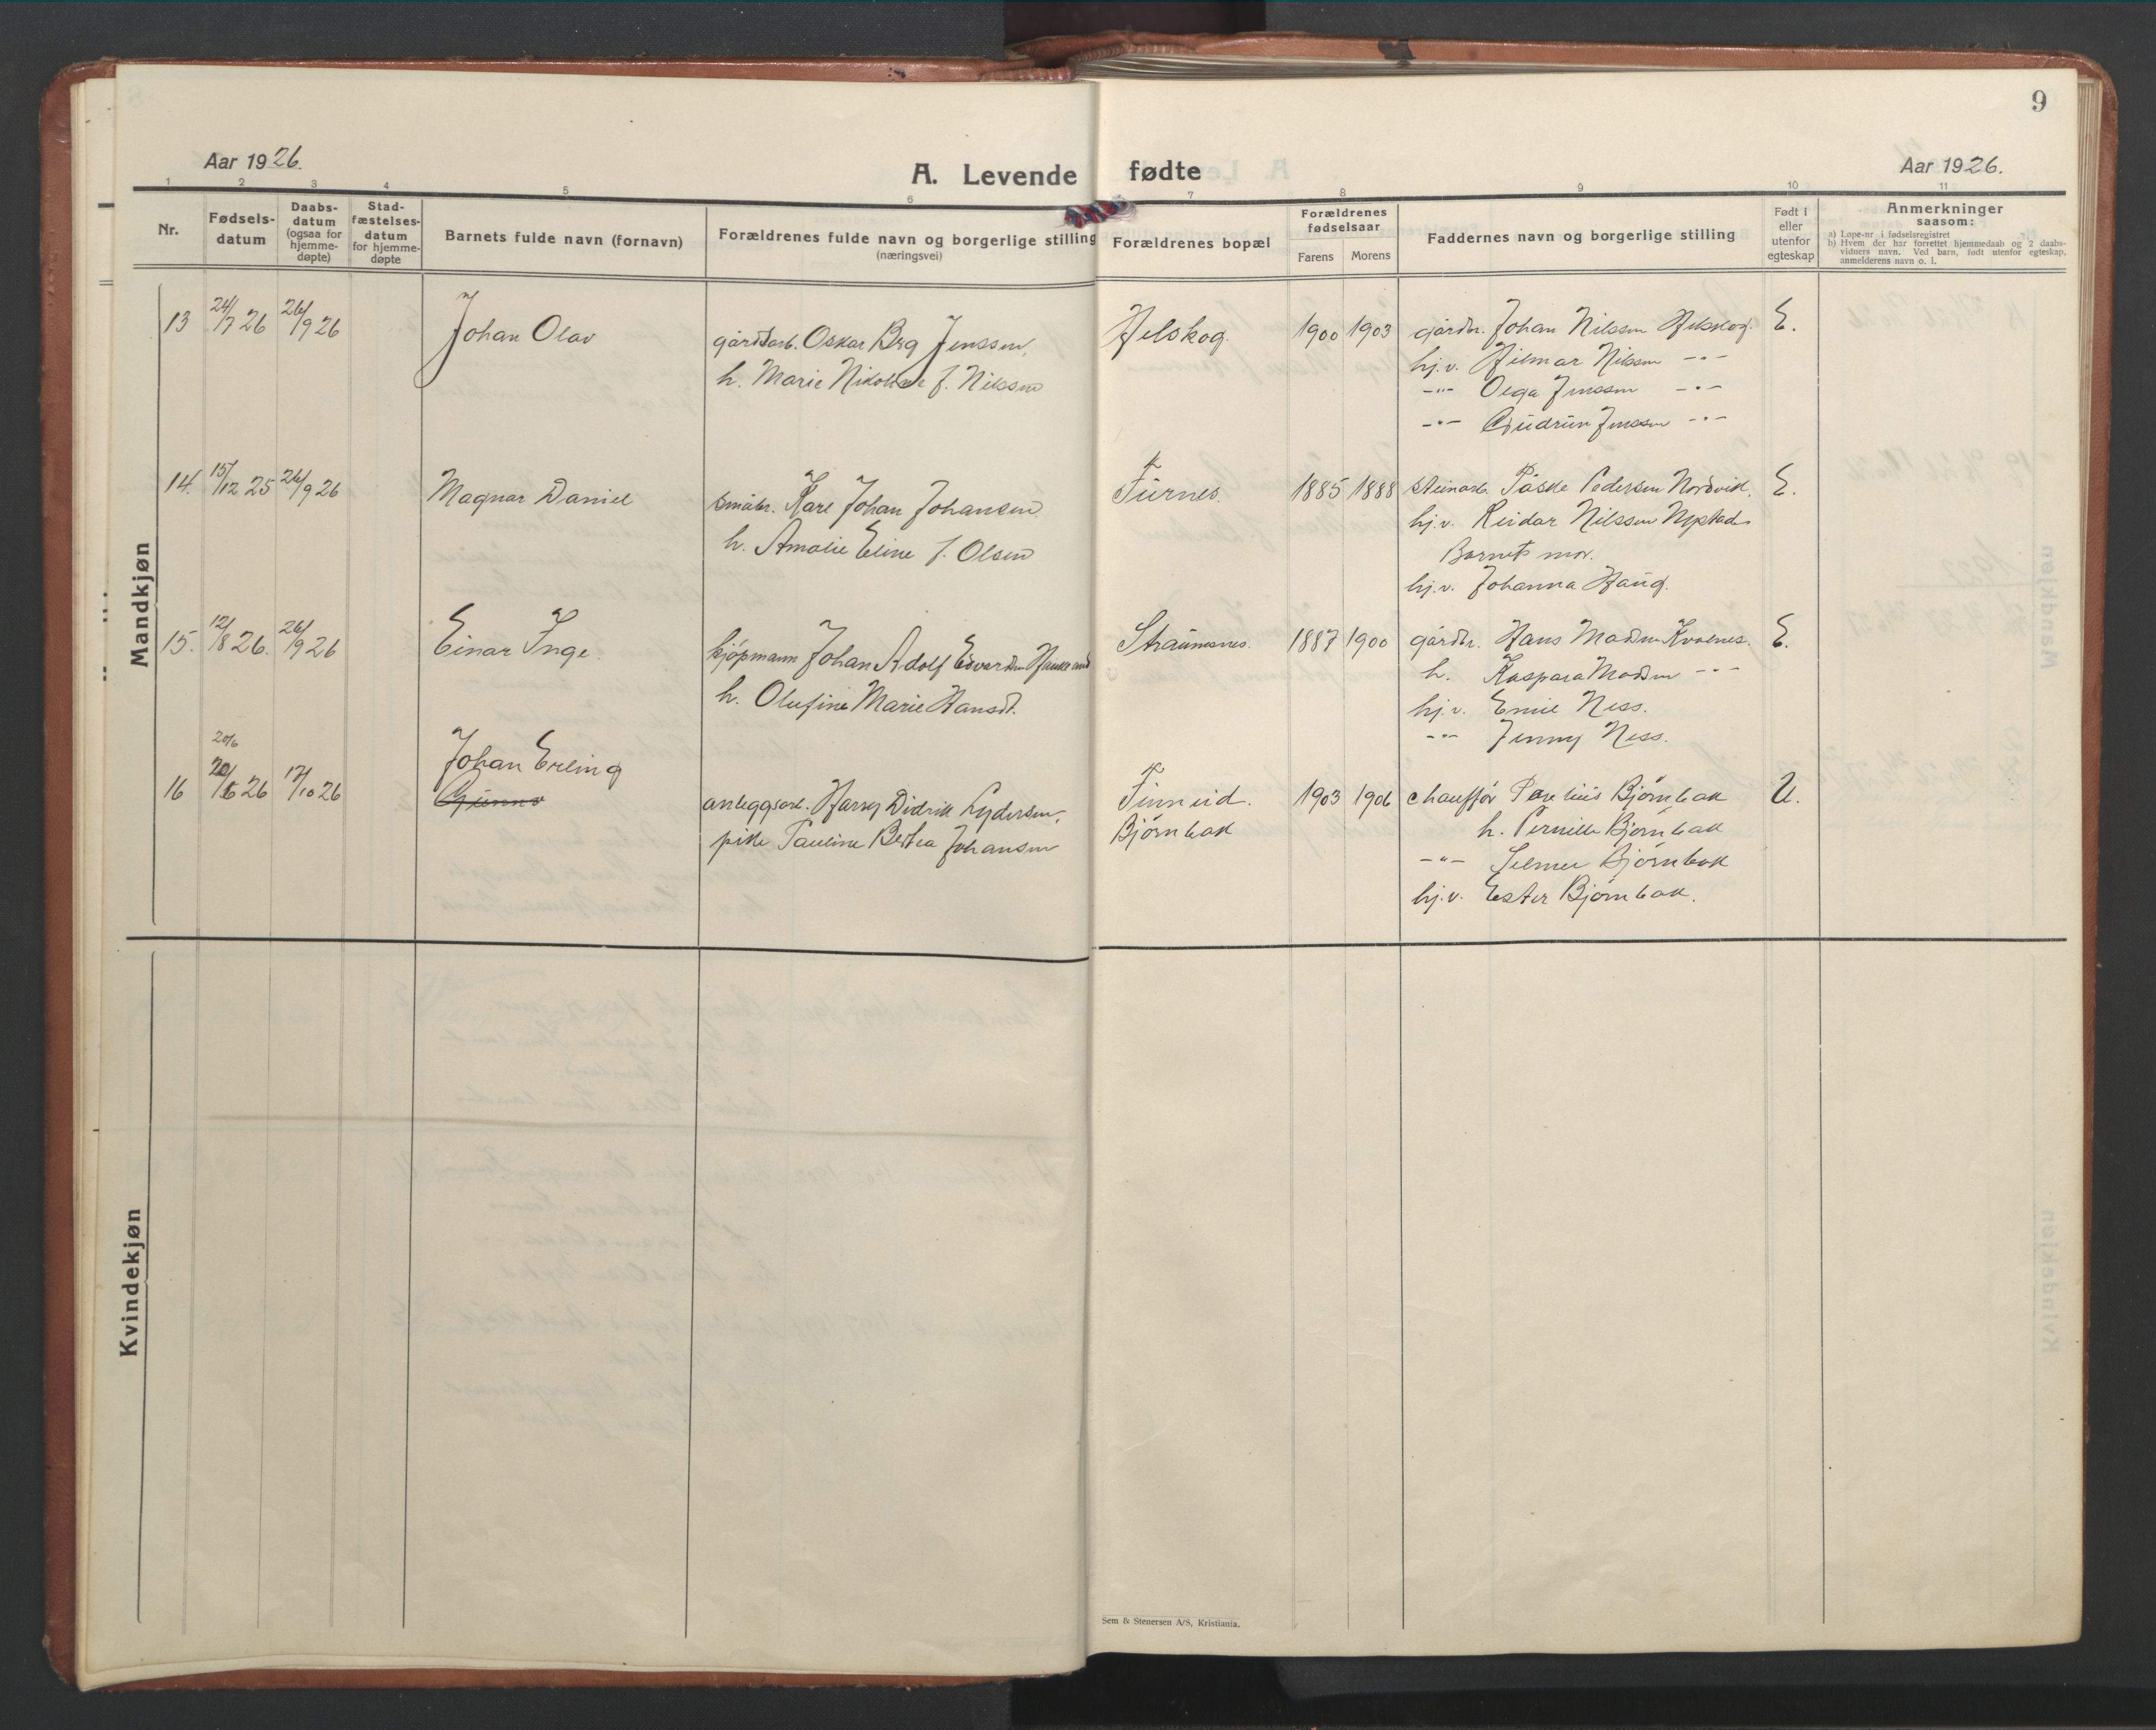 9
Aar 1926.
A. Levende fødte
Aar 1926.
1 2 3 4 5 6 7 8 9 10 11
Nr.
Fødsels-
datum
Daabs-
datum
(ogsaa for
hjemme-
døpte)
Stad-
fæstelses-
datum
for hjemme-
døpte
Barnets fulde navn (fornavn)
Forældrenes fulde navn og borgerlige stilling
(næringsvei)
Forældrenes bopæl
Forældrenes
fødselsaar
Farens Morens
Faddernes navn og borgerlige stilling
Født i
eller
utenfor
egteskap
Anmerkninger
saasom:
a) Løpe-nr i fødselsregistret
b) Hvem der har forrettet hjemmedaab og 2 daabs-
vidners navn. Ved barn, født utenfor egteskap,
anmelderens navn o. l.
Mandkjøn
13 24/7 26 26/9 26 Johan Olav
gårdsarb. Oskar Berg Jenssen,
h. Marie Nikoline f. Nilssen
Helskog. 1900 1903
gårdbr. Johan Nilssen Helskog. E.
hj.v. Hilmar Nilssen -"-
-"- Olga Jenssen -"-
-"- Gudrun Jenssen -"-
14. 15/12 25 26/9 26 Magnar Daniel
småbr. Karl Johan Johansen
h. Amalie Eline f. Olsen
Furnes. 1885 1888
steinarb. Påske Pedersen Nordvik. E.
hj.v. Reidar Nilssen Nystad
Barnets mor.
hj.v. Johanna Haug.
15. 12/8 26. 26/9 26 Einar Inge.
kjøpmann Johan Adolf Edvardsen
h. Olufine Marie Hansdt.
Straumsnes. 1887 1900
gårdbr. Hans Madsen Kvalnes. E.
h. Kaspara Madsen -"-
hj.v. Emil Ness.
-"- Jenny Ness.
20/6
16 20/6 26 17/10 26 Johan Erling
Gunnar
anleggsarb. Harry Didrik Lydersen,
pike Pauline Bertea Johansen
Finneid. 1903 1906
Bjørnbak
chauffør Parelius Bjørnbak U.
h. Pernille Bjørnbak
-"- Selmer Bjørnbak
hj.v. Ester Bjørnbak.
Kvindekjøn
Sem & Stenersen A/S, Kristiania.